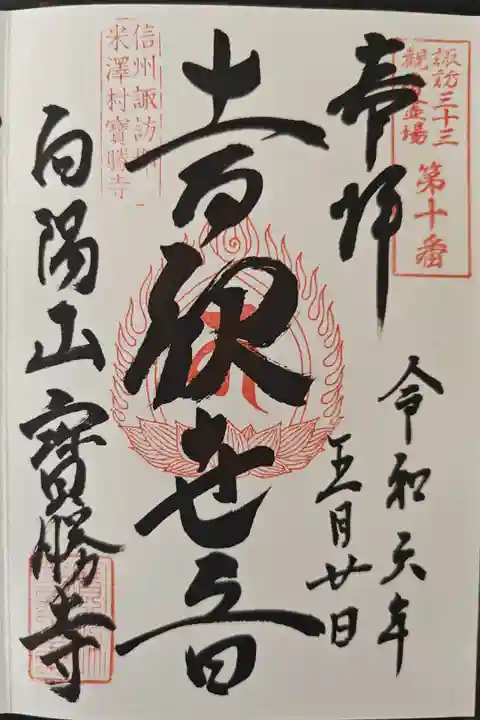 諏訪三十三
観音霊場
第十番
奉拝
令和元年
五月廿日
十一面観世音
信州諏訪郡
米澤村寶勝寺
向陽山 寶勝寺